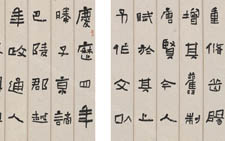 慶曆四年
滕子京謫
巴陵郡越
年政通人
重
增其舊制
唐賢今人
賦於其上
予作文以